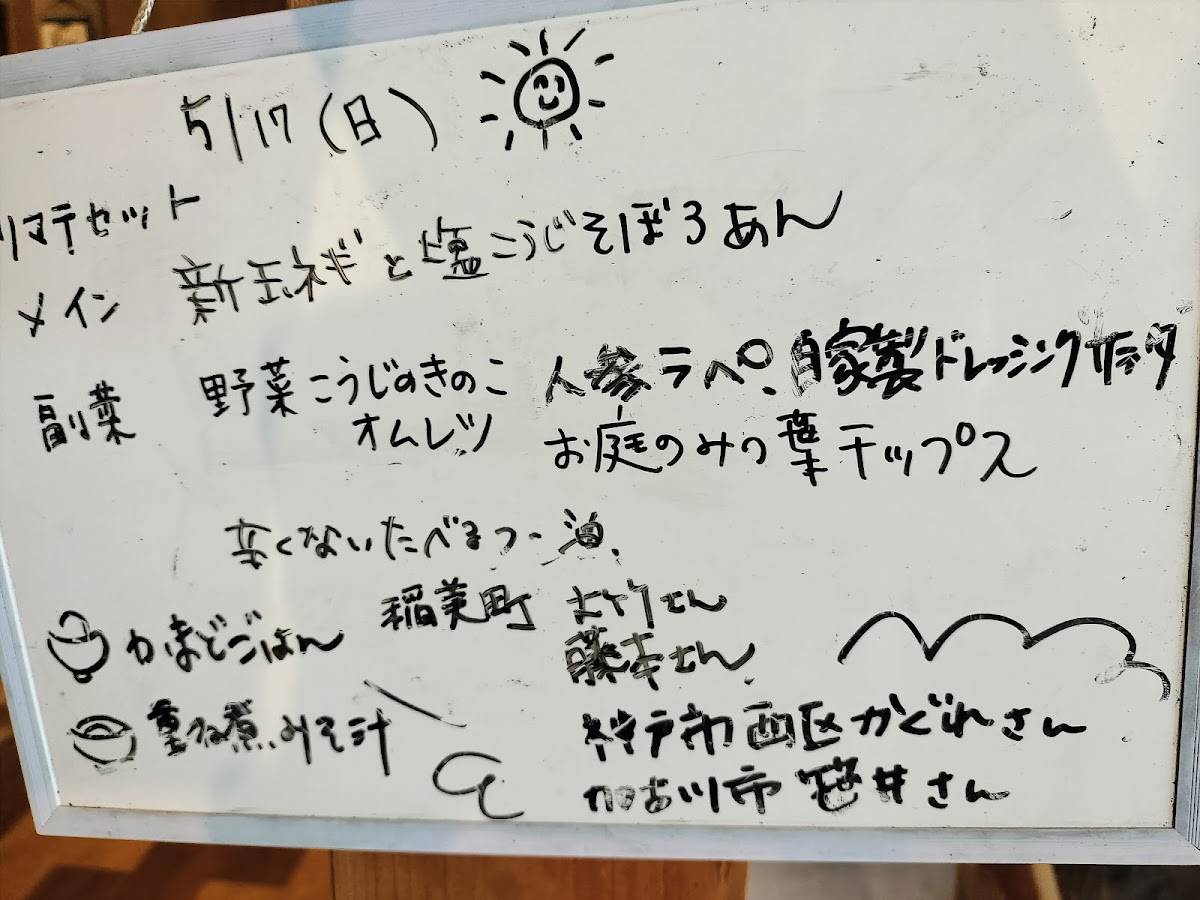 5/17(日)
リマテセット
メイン 新玉ネギと塩こうじそぼろあん
副菜 野菜こうじのきのこオムレツ
人参ラペ、自家製ドレッシングサラダ
お庭のみつ葉チップス
辛くないたべるラー油
かまどごはん
重ね煮みそ汁
稲美町
藤本さん
神戸市西区かぐれさん
加古川市 笹井さん